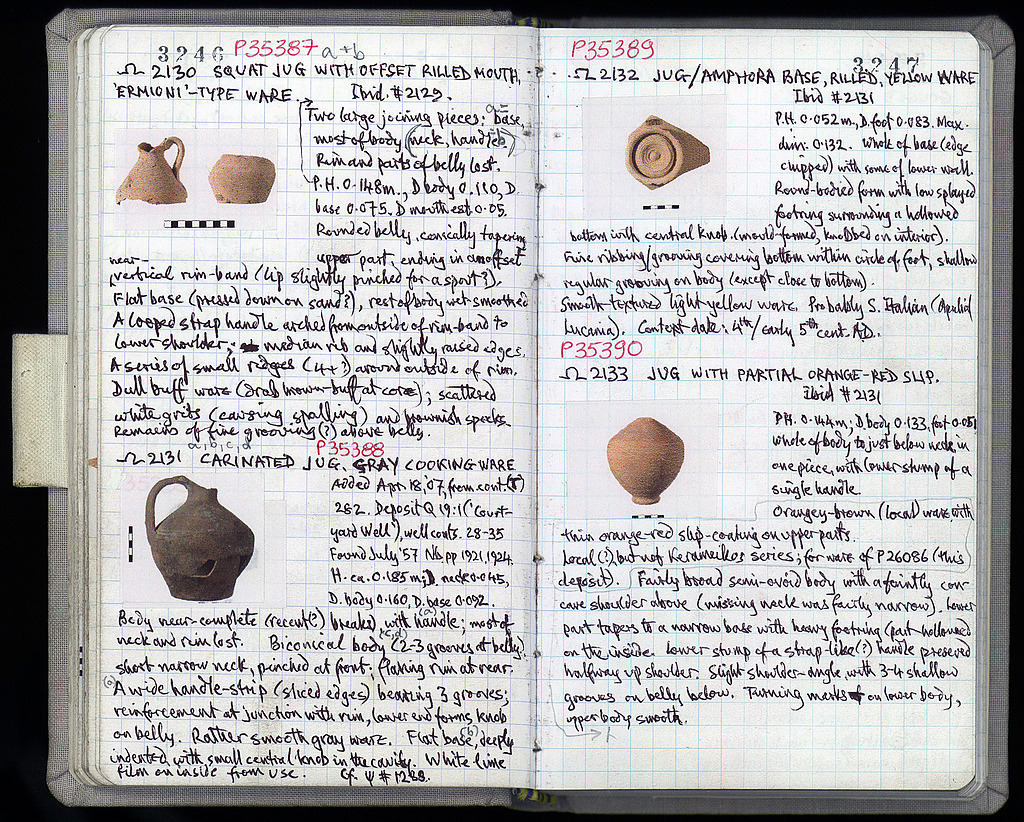 3246 P35387 a+b
Ω 2130 SQUAT JUG WITH OFFSET RILLED MOUTH,
'ERMIONI'-TYPE WARE. Ibid. #2129.
Two large joining pieces: base,
most of body (neck, handle
Rim and parts of belly lost.
P.H. 0.148m., D body 0.110, D.
base 0.075. D mouth est. 0.05.
Rounded belly, conically tapering
upper part, ending in an offset
near-
vertical rim-band (lip slightly pinched for a spout?).
Flat base (pressed down on sand?), rest of body wet smoothed
A looped strap handle arched from outside of rim-band to
lower shoulder; median rib and slightly raised edges.
A series of small ridges (4+?) around outside of rim.
Dull buff ware (drab brown-buff at core); scattered
white grits (causing spalling) and brownish specks.
Remains of fine grooving (?) above belly.
a, b, c, d P35388
Ω 2131 CARINATED JUG. GRAY COOKING WARE
Added Apr. 18, '07, from cont. (T)
282. Deposit Q 19:1 ('Court-
yard Well'), well conts. 28-35
Found July '57 Nb. pp 1921, 1924.
H. ca. 0.185m; D. neck 0.045,
D. body 0.160, D. base 0.092.
Body near-complete (recent(?) breaks) with handle; most of
(a)
neck and rim lost. Biconical body (2-3 grooves at belly)
(c,d)
short narrow neck, pinched at front; flaring rim at rear.
(a) A wide handle-strip (sliced edges) bearing 3 grooves;
reinforcement at junction with rim, lower end forms knob
on belly. Rather smooth gray ware. Flat base, deeply
(b)
indented, with small central knob in the cavity. White lime
film on inside from use. Cf. Ψ # 1288.
P35389 3247
Ω 2132 JUG/AMPHORA BASE, RILLED, YELLOW WARE
Ibid #2131
P.H. 0.052m, D. foot 0.083. Max.
dim. 0.132. Whole of base (edge
chipped) with some of lower wall.
Round-bodied form with low splayed
footring surrounding a hollowed
bottom with central knob. (mould-formed, knobbed on interior).
Fine ribbing/grooving covering bottom within circle of foot, shallow
regular grooving on body (except close to bottom).
Smooth-textured light yellow ware. Probably S. Italian (Apulia/
Lucania). Context date: 4th/early 5th cent. A.D.
P35390
Ω 2133 JUG WITH PARTIAL ORANGE-RED SLIP.
Ibid #2131
P.H. 0.144m; D. body 0.133, foot 0.051
Whole of body to just below neck in
one piece, with lower stump of a
single handle.
Orangey-brown (local) ware, with
thin orange-red slip-coating on upper parts.
Local (?) but not Kerameikos series; for ware cf P26086 (this
deposit). Fairly broad semi-ovoid body with a faintly con-
cave shoulder above (missing neck was fairly narrow). Lower
part tapers to a narrow base with heavy footring (part-hollowed
on the inside. Lower stump of a strap-like (?) handle preserved
halfway up shoulder. Slight shoulder-angle, with 3-4 shallow
grooves on belly below. Turning marks on lower body,
upper body smooth.